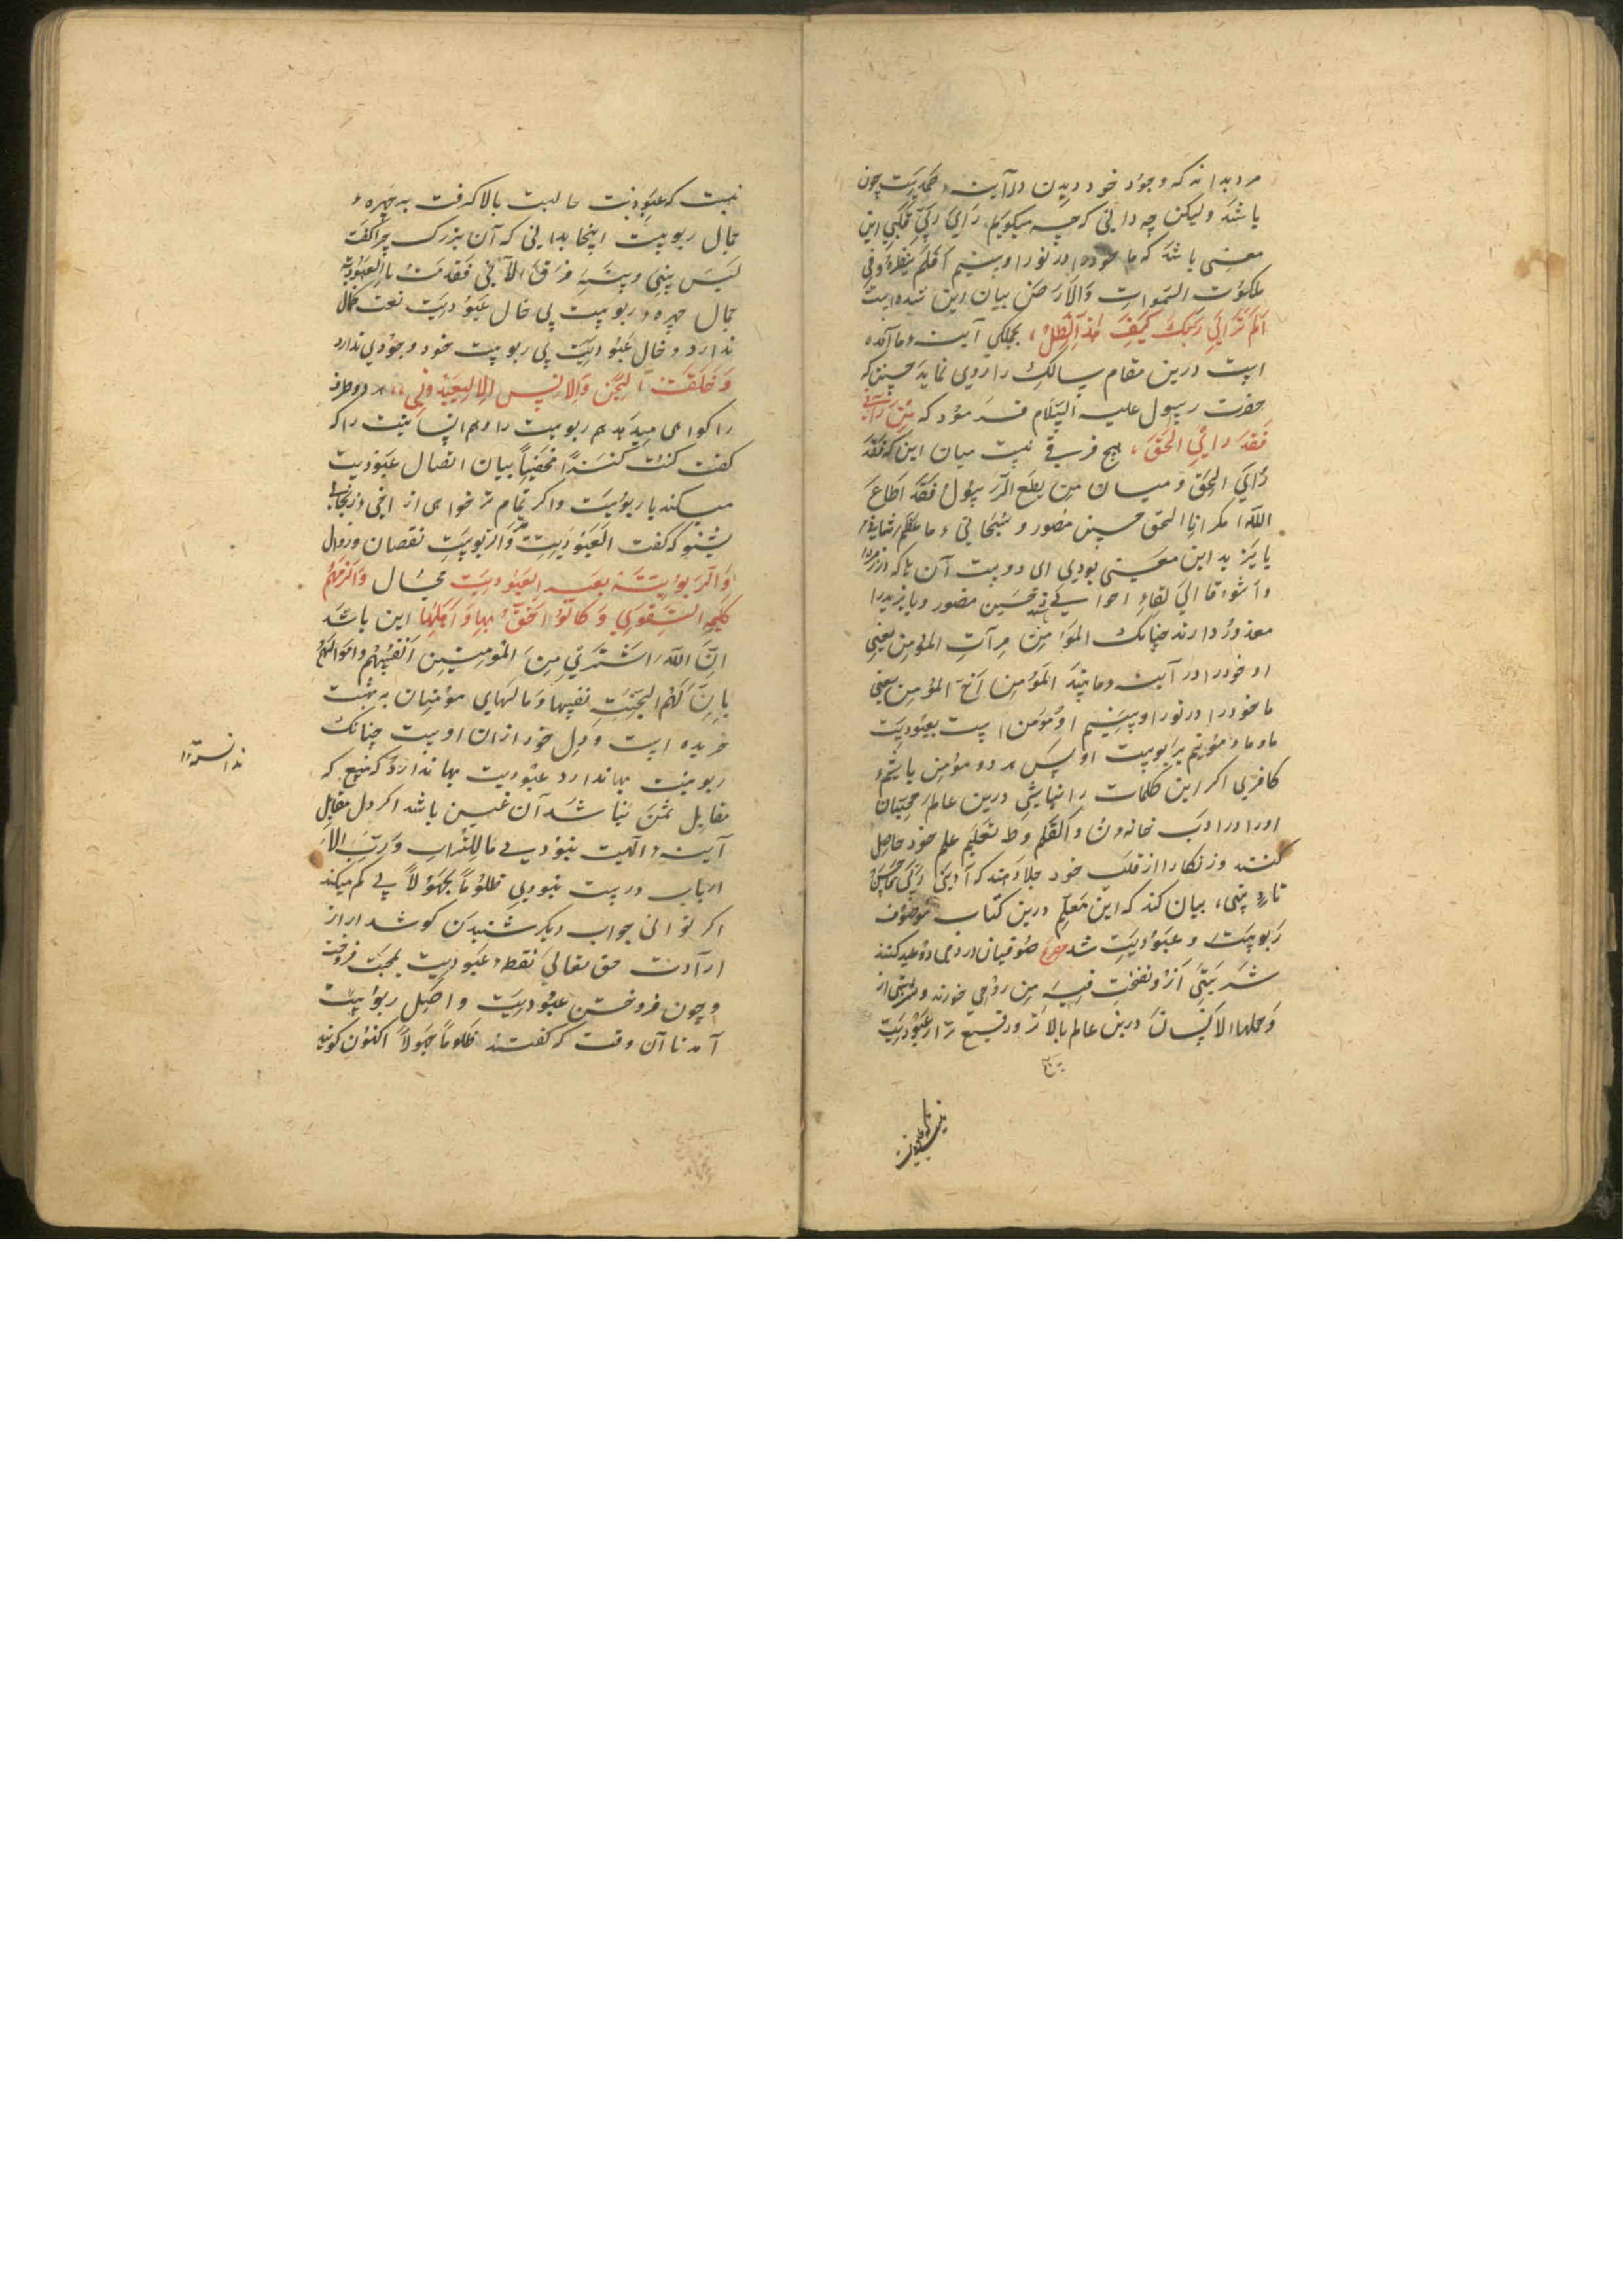 مرد بدانه که وجود خود دیدن در آینه صمدیت چون
باشد ولیکن چه دانی که چه میگویم رای ربی قلبی این
معنی باشد که ما خود را در نور او بینیم اولم ینظروا فی
ملکوت السموات والارض بیان این شده است
الم تر الی ربک کیف مد الظل بجملکی آینه ما آمده
است درین مقام سالک را روی نماید چنین که
حضرت رسول علیه السلام فرمود که من رآنی
فقد رای الحق هیچ فرقی نیست میان این که فقد
رای الحق و میان من یطع الرسول فقد اطاع
الله مکر انا الحق حسین منصور و سبحانی ما اعظم شانی
بایزید این معنی بودی ای دوست آن که
واشوقا الی لقاء اخوانی حسین منصور و بایزید را
معذور دارند چنانک المؤمن مرآت المؤمن یعنی
او خود را در آینه ما بیند المؤمن اخ المؤمن یعنی
ما خود را در نور او بینیم او مؤمن است بعبودیت
ما و ما مؤمنیم بربوبیت او پس هر دو مؤمن باشیم
کافری اکر این کلمات را نباشی درین عالم محبتیان
او را در ادب خانه ن والقلم و ما تعلیم علم خود حاصل
کنند و زنکار را از قلب خود جلا دهند که ادبنی ربی فاحسن
تادیبی بیان کند که این معلم درین کتاب موصوف
ربوبیت و عبودیت شد صوفیان در دمی دو عید کنند
شربتی از و نفخت فیه من روحی خورند و شربتی از
و حملها الانسان درین عالم بالاتر و رفیع تر از عبودیت
نیست که عبودیت حالیست بالا گرفت به چهره
جمال ربوبیت اینجا بدانی که آن بزرک چرا گفت
لیس بینی و بینه فرق الا انی تقدمت بالعبودیة
جمال چهره ربوبیت بی خال عبودیت نعت کمال
ندارد و خال عبودیت بی ربوبیت خود وجودی ندارد
و خلقت الجن والانس الا لیعبدونی هر دو طرف
را گواهی میدهد هم ربوبیت را و هم انسانیت را که
گفت کنت کنزا مخفیا بیان اتصال عبودیت
میکند با ربوبیت واکر تمام تر خواهی از اخی زنجانی
بشنو که گفت العبودیت والربوبیت نقصان و زوال
والربوبیة بغیر العبودیت محال والزمهم
کلمة التقوی و کانوا احق بها و اهلها این باشد
ان الله اشتری من المؤمنین انفسهم واموالهم
بان لهم الجنة نفسها و مالهای مؤمنان به بهشت
خریده است و دل خود از آن اوست چنانک
ربوبیت بها ندارد عبودیت بها ندارد که مبیع که
مقابل ثمن نباشد آن غبن باشد اکر دل مقابل
آینه الهیت نبودی ما للتراب و رب الا
ارباب درست نبودی ظلوما جهولا پی کم میکند
اکر توانی جواب دیگر شنیدن گوش دار از
ارادت حق تعالی نقطه عبودیت بمحبت فروخت
و چون فروختن عبودیت و اصل ربوبیت
آمد تا آن وقت که گفتند ظلوما جهولا اکنون گویند